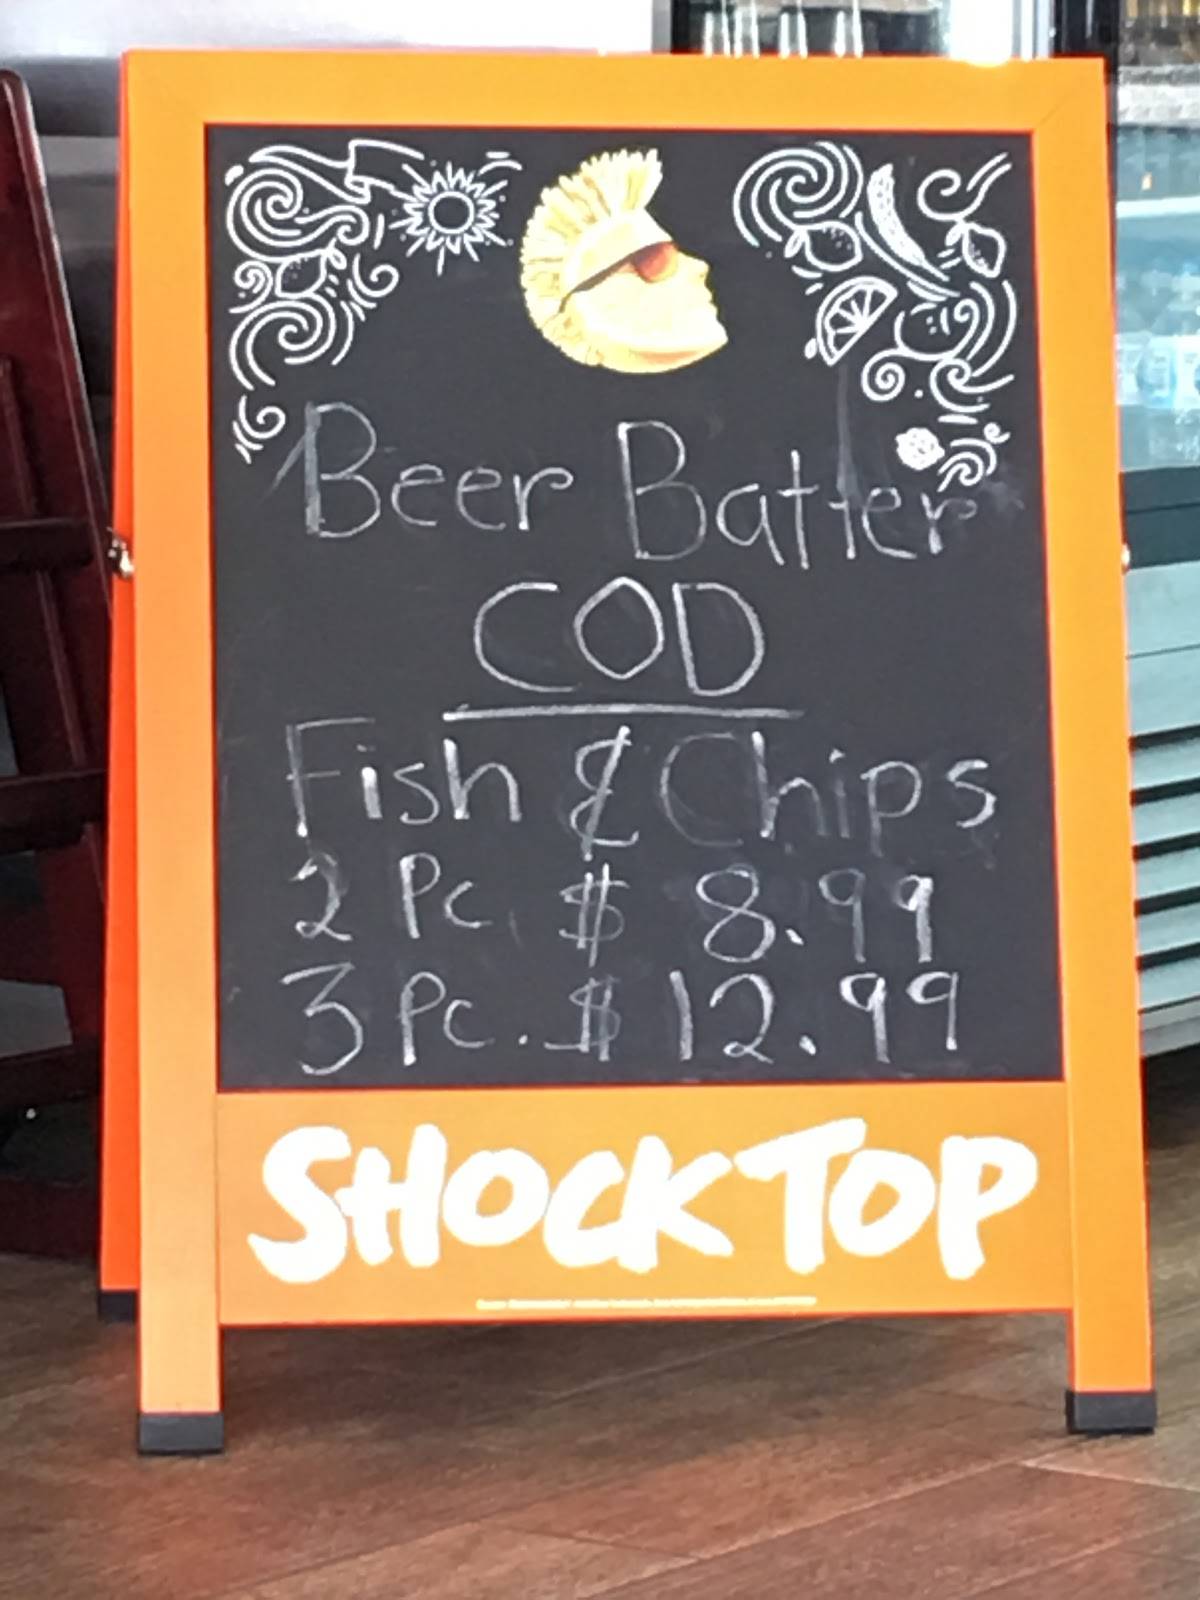 Beer Batter
COD
Fish & Chips
2 Pc. $ 8.99
3 Pc. $ 12.99
SHOCK TOP